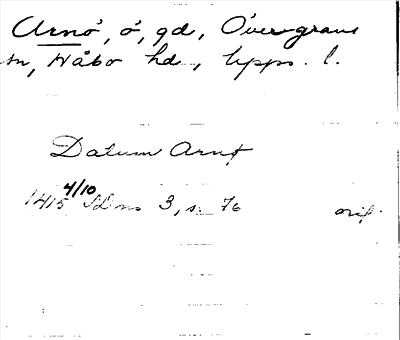 Arnö, ö, gd, Övergrans
sn, Håbo hd, Upps. l.
Datum Arnø
1415 4/10 SDns 3, s. 76 orig.